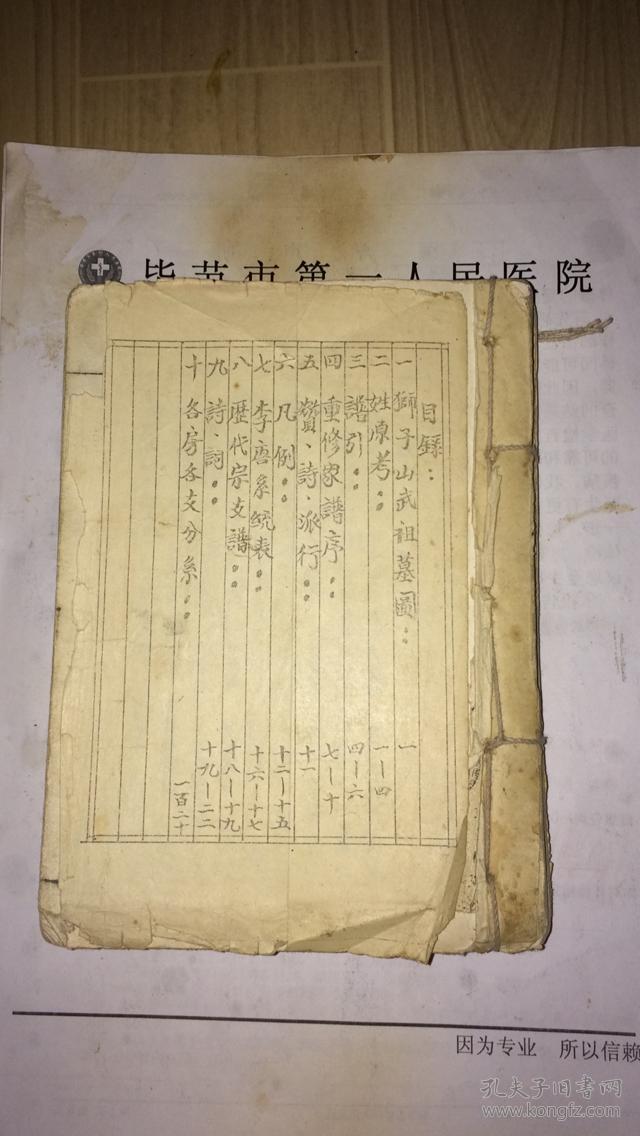 毕节市第一人民医院
目録：
一 獅子山武祖墓圖：一
二 姓原考：一－四
三 譜引：四－六
四 重修家譜序：七－十
五 贊、詩、派行：十一
六 凡例：十二－十五
七 李唐系統表：十六－十七
八 歷代宗支譜：十八－十九
九 詩、詞：十九－二二
十 各房各支分系：一百二十
因为专业 所以信赖
孔夫子旧书网
www.kongfz.com